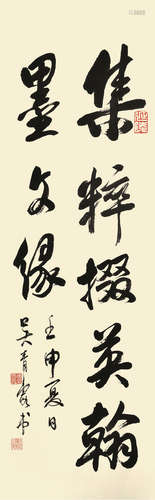 集粹掇英翰
墨文缘
壬申夏日
吴青霞书